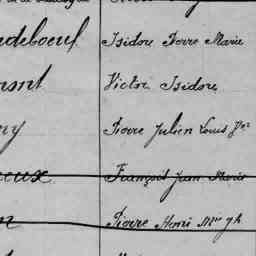 ndeboeuf Isidore Pierre Marie
Victor Isidore
ny Pierre Julien Louis Vor
eux François Jean Marie
n Pierre Henri Mie Jh